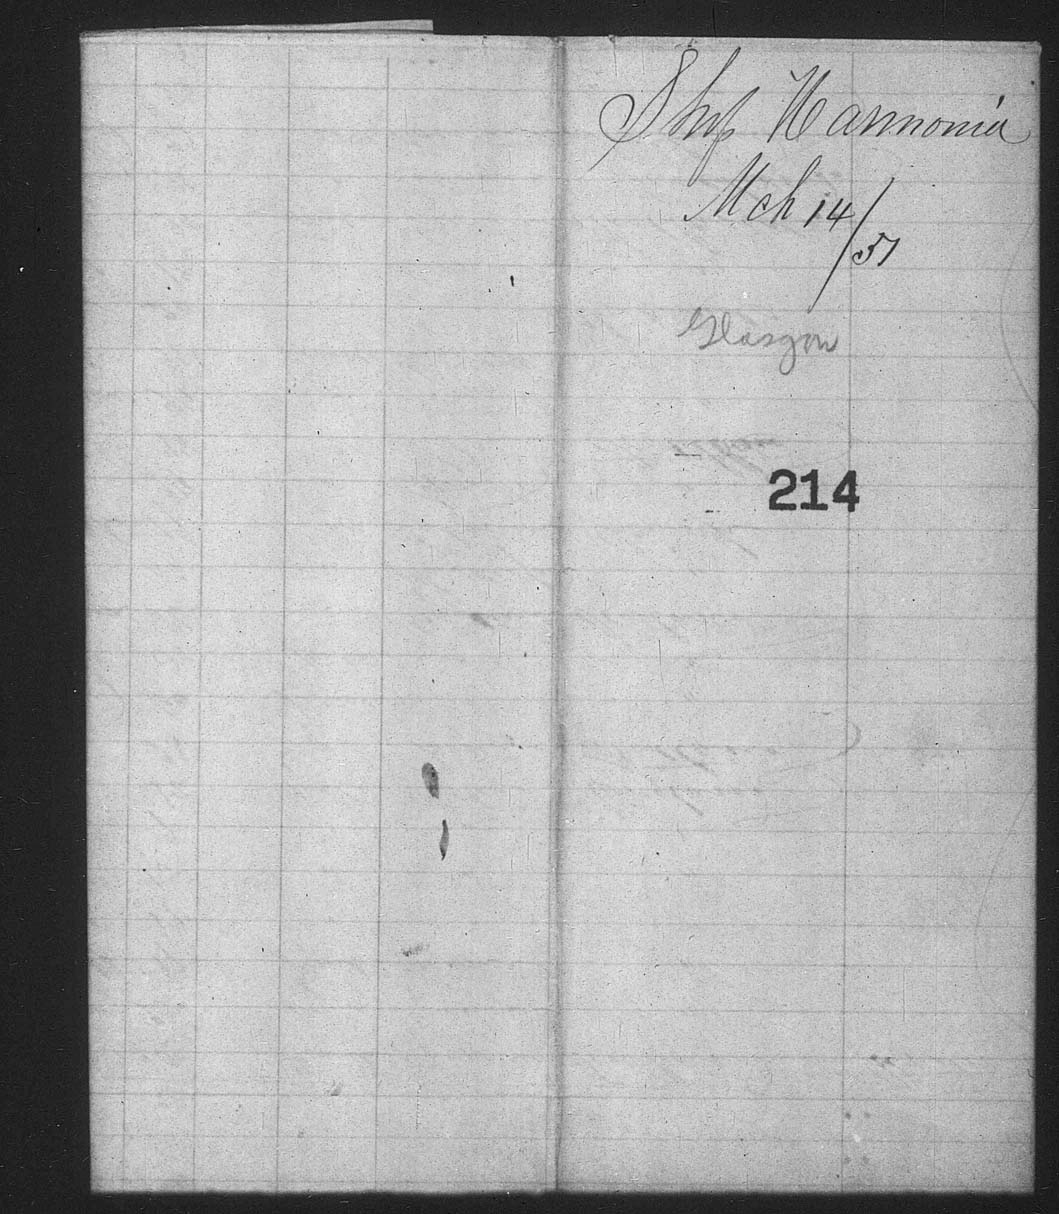 Ship Harmonia
Mch 14/51
Glasgow
214